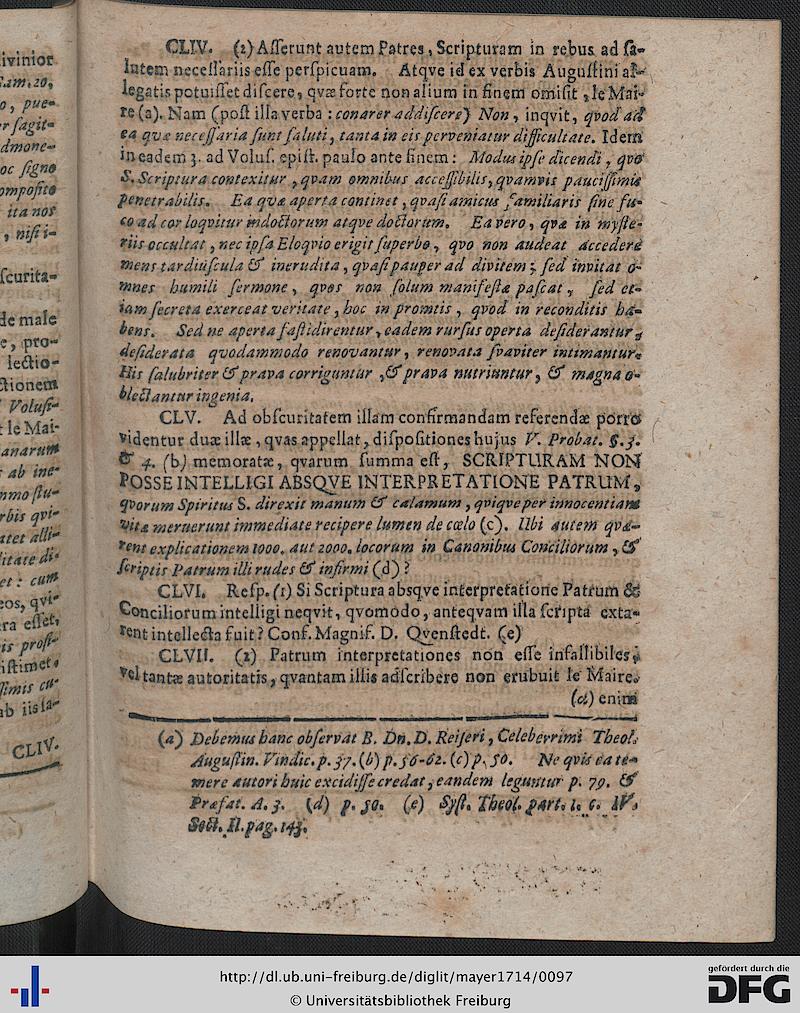 ivinior
Sam. 20,
o, pue-
r sagit-
dmone-
oc signo
omposito
ita nos
, nisi i-
scurita-
de male
e, pro-
lectio-
ctionem
Volusi-
t le Mai-
anarum
ab ine-
mmo stu-
rbis qvi-
atet alli-
litate di-
et: cum
eos, qvi-
ra esset,
is prosi-
istimet.
ssimis cu-
ab iis la-
CLIV.
CLIV. (2) Aſſerunt autem Patres, Scripturam in rebus ad ſa-
lutem neceſſariis eſſe perſpicuam. Atqve id ex verbis Auguſtini al-
legatis potuiſſet diſcere, qvæ forte non alium in finem omiſit, le Mai-
re (a). Nam (poſt illa verba: conarer addiſcere) Non, inqvit, qvod ad
ea qvæ neceſſaria ſunt ſaluti, tanta in eis perveniatur difficultate. Idem
in eadem 3. ad Voluſ. epiſt. paulo ante finem: Modus ipſe dicendi, qvo
S. Scriptura contexitur, qvam omnibus acceſſibilis, qvamvis pauciſſimis
penetrabilis. Ea qvæ aperta continet, qvaſi amicus familiaris ſine fu-
co ad cor loqvitur indoctorum atqve doctorum. Ea vero, qvæ in myſte-
riis occultat, nec ipſa Eloqvio erigit ſuperbo, qvo non audeat accedere
mens tardiuſcula & inerudita, qvaſi pauper ad divitem; ſed invitat o-
mnes humili ſermone, qvos non ſolum manifeſta paſcat, ſed et-
iam ſecreta exerceat veritate, hoc in promtis, qvod in reconditis ha-
bens. Sed ne aperta faſtidirentur, eadem rurſus operta deſiderantur,
deſiderata qvodammodo renovantur, renovata ſvaviter intimantur.
His ſalubriter & prava corriguntur, & prava nutriuntur, & magna o-
blectantur ingenia.
CLV. Ad obſcuritatem illam confirmandam referendæ porro
videntur duæ illæ, qvas appellat, diſpoſitiones hujus V. Probat. §. 3.
& 4. (b) memoratæ, qvarum ſumma eſt, SCRIPTURAM NON
POSSE INTELLIGI ABSQVE INTERPRETATIONE PATRUM,
qvorum Spiritus S. direxit manum & calamum, qviqve per innocentiam
vitæ meruerunt immediate recipere lumen de cœlo (c). Ubi autem qvæ-
rent explicationem 1000. aut 2000. locorum in Canonibus Conciliorum, &
ſcriptis Patrum illi rudes & infirmi (d)?
CLVI. Reſp. (1) Si Scriptura absqve interpretatione Patrum &
Conciliorum intelligi neqvit, qvomodo, anteqvam illa ſcripta exta-
rent intellecta fuit? Conf. Magnif. D. Qvenſtedt. (e)
CLVII. (2) Patrum interpretationes non eſſe infallibiles,
vel tantæ autoritatis, qvantam illis adſcribere non erubuit le Maire.
(α) enim
(a) Debemus hanc obſervat B. Dn. D. Reiſeri, Celeberrimi Theol.
Auguſtin. Vindic. p. 37. (b) p. 56-62. (c) p. 50. Ne qvis ea te-
mere autori huic excidiſſe credat, eandem leguntur p. 79. &
Præfat. A. 3. (d) p. 50. (e) Syſt. Theol. part. 1. c. IV.
Sect. II. pag. 143.
http://dl.ub.uni-freiburg.de/diglit/mayer1714/0097
© Universitätsbibliothek Freiburg
gefördert durch die
DFG